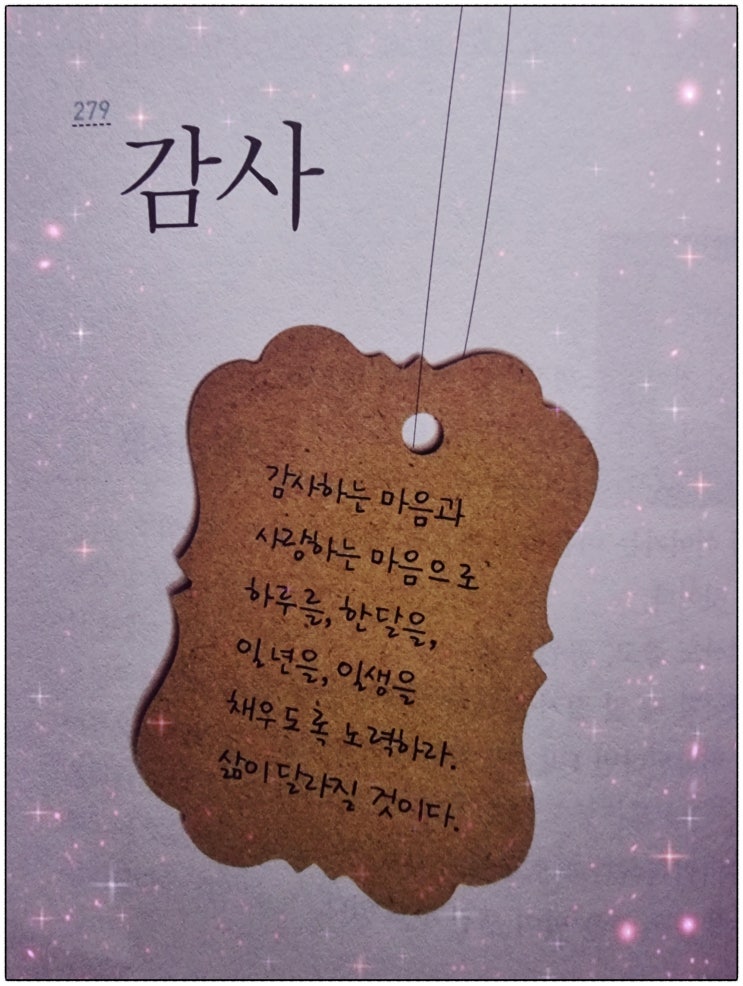 279
감사
감사하는 마음과
사랑하는 마음으로
하루를, 한달을,
일년을, 일생을
채우도록 노력하라.
삶이 달라질 것이다.